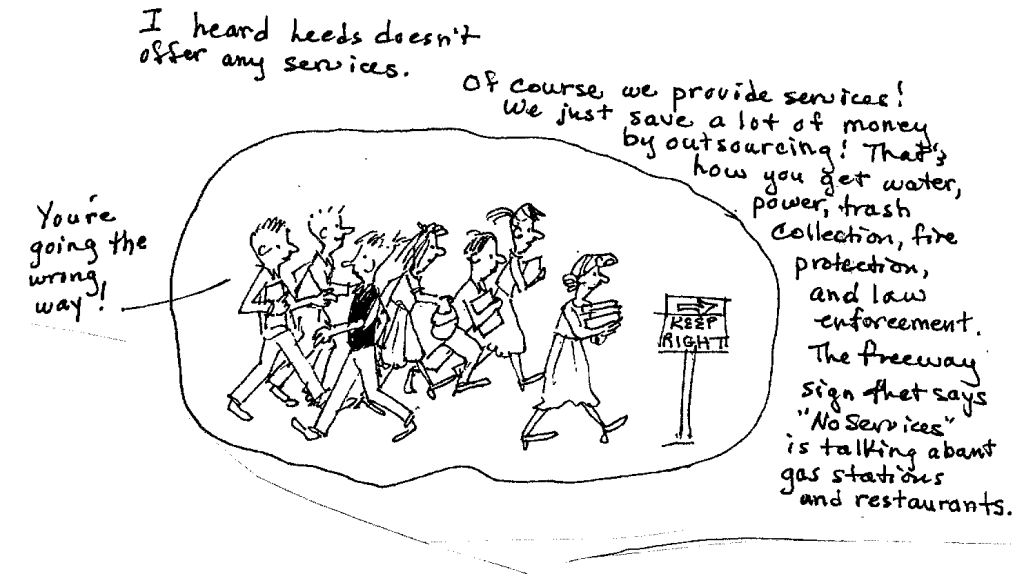 I heard Leeds doesn't
offer any services.
Of course we provide services!
We just save a lot of money
by outsourcing! That's
how you get water,
power, trash
collection, fire
protection,
and law
enforcement.
The freeway
sign that says
"No Services"
is talking about
gas stations
and restaurants.
You're
going the
wrong
way!
KEEP
RIGHT